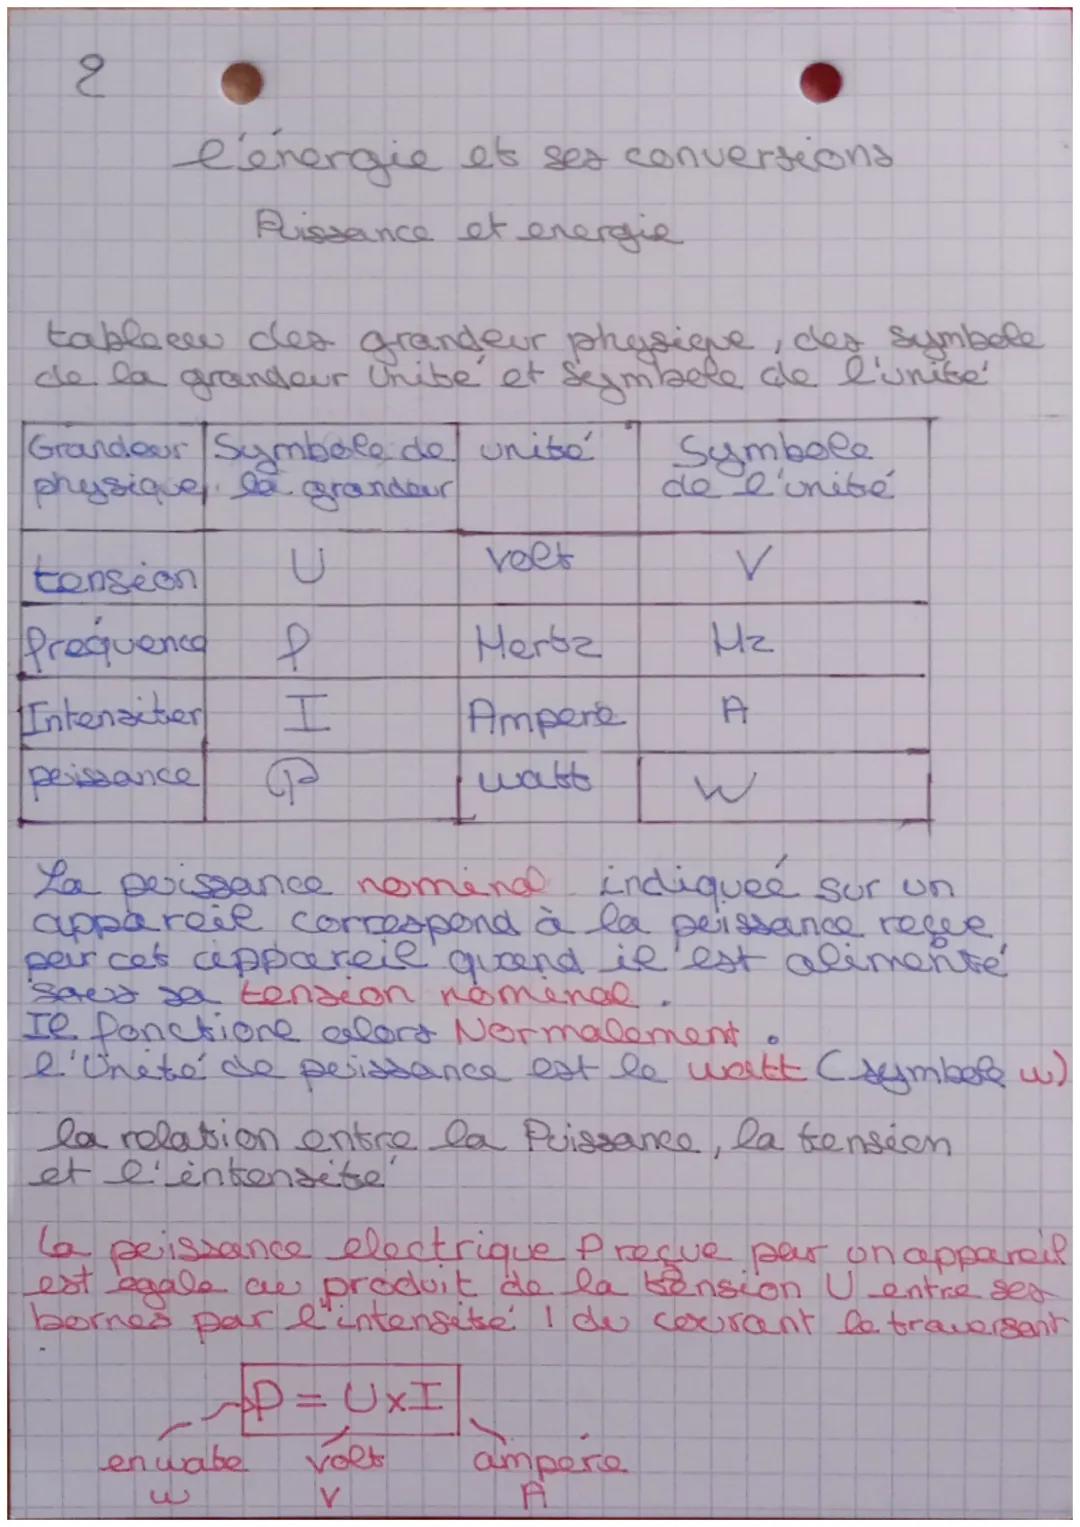 2
l'énergie et ses conversions
Puissance et energie
tableau des grandeur physique, des symbole
de la grandeur unité et symbole de l'unité
Grandeur physique Symbole de la grandeur unité Symbole de l'unité
tension U volt V
fréquence f Hertz Hz
Intensiter I Ampere A
puissance P watt W
La puissance nominal indiqueé sur un
appareil correspond à la puissance reçue
par cet appareil quand il est alimenté
sous sa tension nominal.
Il fonctione alors Normalement.
l'unité de puissance est le watt (symbole w)
la relation entre la Puissance, la tension
et l'intensité
la puissance electrique P reçue par un appareil
est egale au produit de la tension U entre ses
bornes par l'intensité I du courant le traversant
P = U x I
en wate volt ampère
w V A